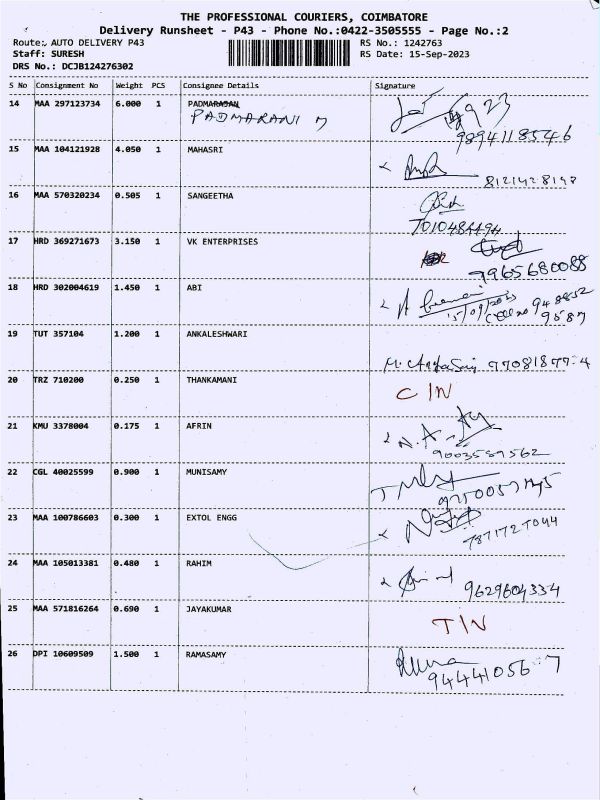 THE PROFESSIONAL COURIERS, COIMBATORE
Delivery Runsheet - P43 - Phone No.:0422-3505555 - Page No.:2
Route: AUTO DELIVERY P43 RS No.: 1242763
Staff: SURESH RS Date: 15-Sep-2023
DRS No.: DCJB124276302
S No Consignment No Weight PCS Consignee Details Signature
14 MAA 297123734 6.000 1 PADMARASAN
PADMARANI
9894118546
15 MAA 104121928 4.050 1 MAHASRI
16 MAA 570320234 0.505 1 SANGEETHA
17 HRD 369271673 3.150 1 VK ENTERPRISES
9965680088
18 HRD 302004619 1.450 1 ABI
15/09/2023
19 TUT 357104 1.200 1 ANKALESHWARI
20 TRZ 710200 0.250 1 THANKAMANI
C IN
21 KMU 3378004 0.175 1 AFRIN
N.A
9003589562
22 CGL 40025599 0.900 1 MUNISAMY
23 MAA 100786603 0.300 1 EXTOL ENGG
7871727044
24 MAA 105013381 0.480 1 RAHIM
9629604334
25 MAA 571816264 0.690 1 JAYAKUMAR
TIN
26 DPI 10609509 1.500 1 RAMASAMY